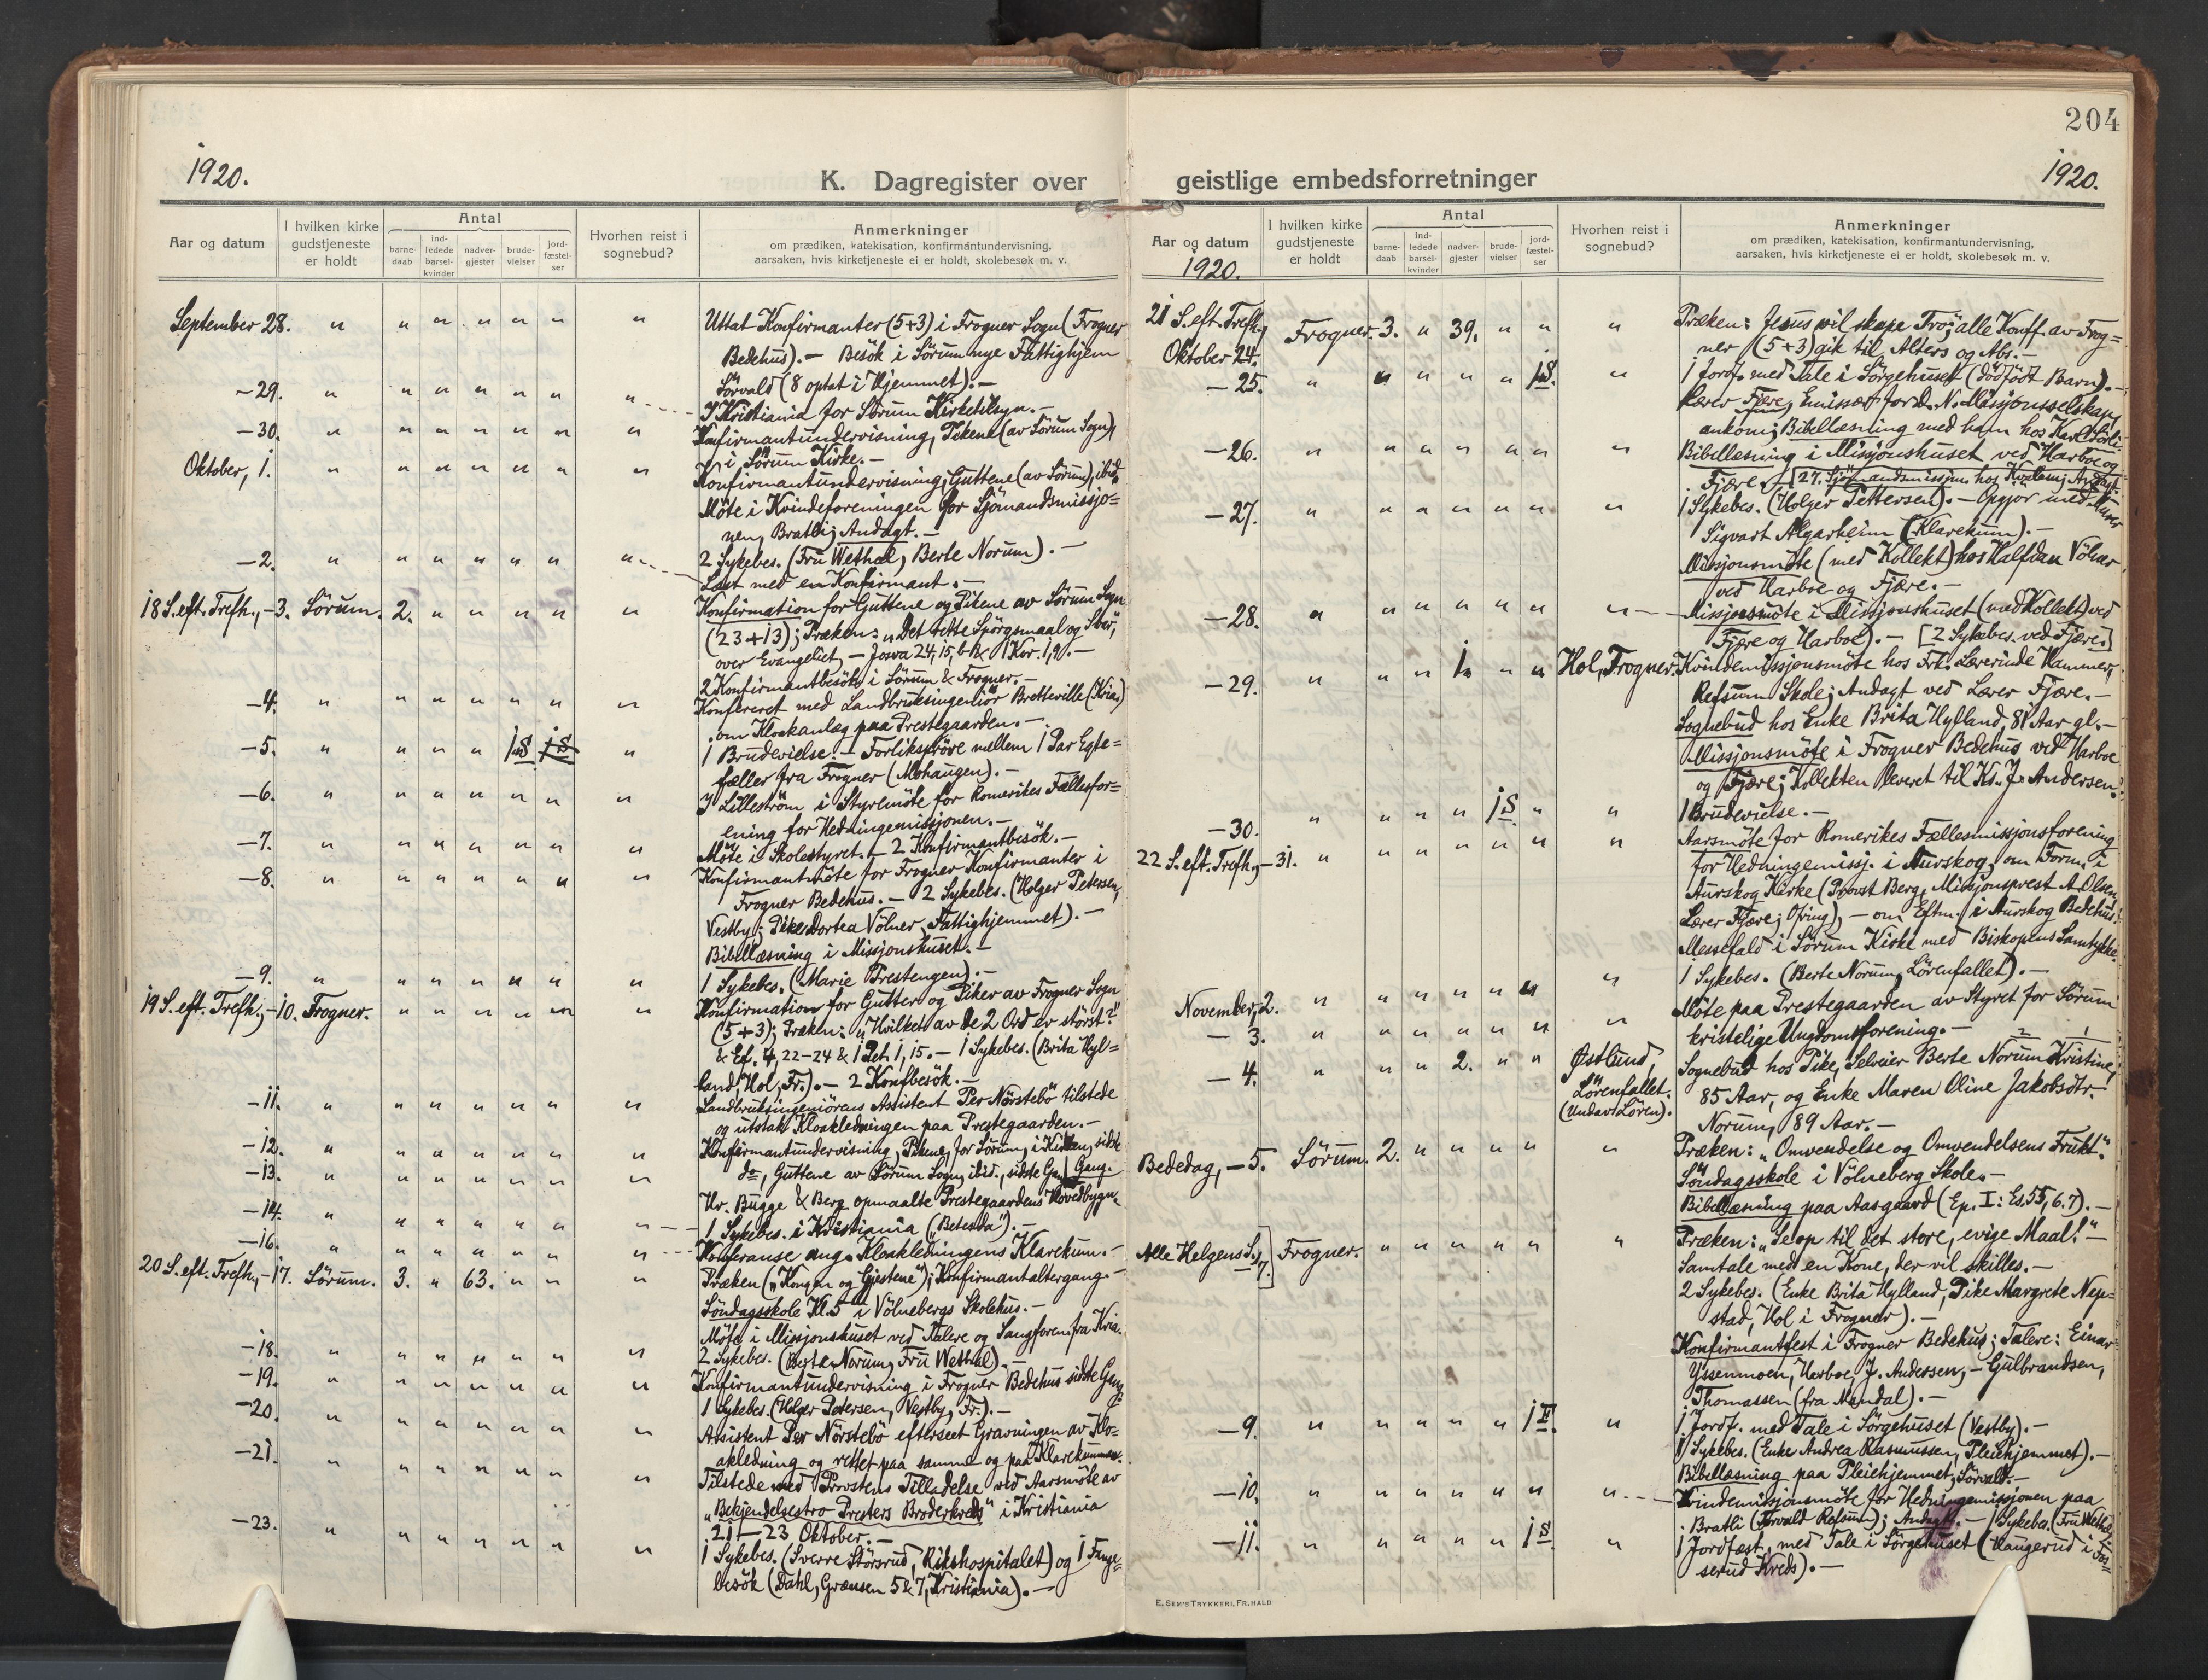 204
1920.
K. Dagregister over
Aar og datum
I hvilken kirke gudstjeneste er holdt
Antal
barne-daab
ind-ledede barsel-kvinder
nadver-gjester
brude-vielser
jord-fæstel-ser
Hvorhen reist i sognebud?
Anmerkninger
om prædiken, katekisation, konfirmantundervisning,
aarsaken, hvis kirketjeneste ei er holdt, skolebesøk m. v.
September 28. " " " " " " " Uttat Konfirmanter (5+3) i Frogner Sogn (Frogner
Bedehus).— Besök i Sörum nye Fattighjem
Sörvald (8 optat i Hjemmet).—
—29. " " " " " " " I Kristiania for Sörum Kirketilsyn.—
—30. " " " " " " " Konfirmantundervisning, Pikene (av Sörum Sogn),
i Sörum Kirke.—
Oktober, 1. " " " " " " " Konfirmantundervisning, Guttene (av Sörum), ibid.
Möte i Kvindeforeningen for Sjömandsmissjo=
nen, Bratli; Andagt.—
—2. " " " " " " " 2 Sykebes. (Fru Wethal, Berte Norum).—
Læst med en Konfirmant.—
18 S. eft. Trefh., —3. Sörum. 2. " " " " " Konfirmation for Guttene og Pikene av Sörum Sogn
(23+13); Præken: "Det rette Spörgsmaal og Svar,
over Evangeliet, — Josva 24,15, b & 1 Kor. 1,9.—
2 Konfirmantbesök i Sörum & Frogner.—
—4. " " " " " " " Konfereret med Landbruksingeniör Bretteville (Kria.)
om Kloakanlæg paa Prestegaarden.—
—5. " " " " 1 S. 1 S. " 1 Brudevielse.— Forlikspröve mellem 1 Par Egte=
fæller fra Frogner (Mohaugen).—
—6. " " " " " " " I Lilleström i Styremöte for Romerikes Fællesfor=
ening for Hedningemissjonen.—
—7. " " " " " " " Möte i Skolestyret.— 2 Konfirmantbesök.—
—8. " " " " " " " Konfirmantmöte for Frogner Konfirmanter i
Frogner Bedehus.— 2 Sykebes. (Holger Petersen,
Vestby; Pike Dortea Völner, Fattighjemmet).—
Bibellæsning i Missjonshuset.—
—9. " " " " " " " 1 Sykebes. (Marie Prestengen).—
19 S. eft. Trefh., —10. Frogner. " " " " " " Konfirmation for Gutter og Piker av Frogner Sogn
(5+3); Præken: "Hvilket av de 2 Ord er störst?"
& Ef. 4, 22-24 & 1 Pet. 1, 15.— 1 Sykebes. (Brita Hyl=
land, Hol, Fr.).— 2 Konfbesök.—
—11. " " " " " " " Landbruksingeniörens Assistent Per Nörstebö tilstede
og utstak Kloakledningen paa Prestegaarden.—
—12. " " " " " " " Konfirmantundervisning, Pikene, for Sörum, i Kirken, sidste
—13. " " " " " " " do, Guttene av Sörum Sogn, ibid., sidste Gang. Gang.
Hr. Bugge & Berg opmaalte Prestegaardens Hovedbygn.
—14. " " " " " " " 1 Sykebes. i Kristiania ("Betesda").—
—16. " " " " " " " Konferanse ang. Kloakledningens Klarekum.—
20 S. eft. Trefh., —17. Sörum. 3. " 63. " " " Præken ("Kongen og Gjestene"); Konfirmantaltergang.—
Söndagsskole Kl. 5 i Völnebergs Skolehus.—
Möte i Missjonshuset ved Talere og Sangforen. fra Kria.
—18. " " " " " " " 2 Sykebes. (Berte Norum, Fru Wethal).—
—19. " " " " " " " Konfirmantundervisning i Frogner Bedehus sidste Gang
1 Sykebes. (Holger Petersen, Vestby, Fr.).—
—20. " " " " " " " Assistent Per Nörstebö efterseet Gravningen av Klo=
akledning og rettet paa samme og paa Klarekummen.
—21. " " " " " " " Tilstede med Provstens Tilladelse ved Aarsmöte av
"Bekjendelsestro Presters Broderkreds" i Kristiania
21—23 Oktober.—
—23. " " " " " " " 1 Sykebes. (Sverre Störsrud, Rikshospitalet) og 1 Fange=
besök (Dahl, Grænsen 5 & 7, Kristiania).—
geistlige embedsforretninger
1920.
Aar og datum
1920.
I hvilken kirke gudstjeneste er holdt
Antal
barne-daab
ind-ledede barsel-kvinder
nadver-gjester
brude-vielser
jord-fæstel-ser
Hvorhen reist i sognebud?
Anmerkninger
om prædiken, katekisation, konfirmantundervisning,
aarsaken, hvis kirketjeneste ei er holdt, skolebesøk m. v.
21 S. eft. Trefh., Frogner. 3. " 39. " " " Præken: Jesus vil skape Tro; alle Konff. av Frog=
Oktober 24. ner (5+3) gik til Alters og Abs.—
—25. " " " " " 1 S. " 1 Jordf. med Tale i Sörgehuset (dödfödt Barn).—
Lærer Fjære, Emissær for d. N. Missjonsselskap,
ankom; Bibellæsning med ham hos Karl Sörli.
—26. " " " " " " " Bibellæsning i Missjonshuset ved Harboe og
Fjære.— [27. Sjömandsmissjon hos Kvalem; Andagt.
—27. " " " " " " " 1 Sykebes. (Holger Pettersen).— Opgjör med Murer
Sigvart Algarheim (Klarekum).—
Missjonsmöte (med Kollekt) hos Halfdan Völner
ved Harboe og Fjære.—
—28. " " " " " " " Missjonsmöte i Missjonshuset (med Kollekt) ved
Fjære og Harboe).— [2 Sykebes. ved Fjære]
—29. " " " 1. " " Hol, Frogner. Kvindemissjonsmöte hos Frk. Lærerinde Hammer,
Refsum Skole; Andagt ved Lærer Fjære.—
Sognebud hos Enke Brita Hylland, 81 Aar gl.—
Missjonsmöte i Frogner Bedehus ved Harboe
og Fjære; Kollekten leveret til Ks. J. Andersen.
—30. " " " " 1 S. " " 1 Brudevielse.—
22 S. eft. Trefh., —31. " " " " " " " Aarsmöte for Romerikes Fællesmissjonsforening
for Hedningemissj. i Aurskog, om Form. i
Aurskog Kirke (Provst Berg, Missjonsprest A. Olsen,
Lærer Fjære; Ofring), — om Eftm. i Aurskog Bedehus.
Messefald i Sörum Kirke med Biskopens Samtykke.
November, 2. " " " " " " " 1 Sykebes. (Berte Norum, Lörenfallet).—
— 3. " " " " " " " Möte paa Prestegaarden av Styret for Sörum
kristelige Ungdomsforening.—
— 4. " " " 2. " " Østlund, Sognebud hos Pike, Selveier Berte Norum Kristine,
Lörenfallet. 85 Aar, og Enke Maren Oline Jakobsdtr.
(Undav. Lören). Norum, 89 Aar.—
Bededag, —5. Sörum. 2. " " " " " Præken: "Omvendelse og Omvendelsens Frukt."
Söndagsskole i Völneberg Skole.—
Bibellæsning paa Aasgaard (Ep. I: Es. 55, 6. 7).—
Alle Helgens S., 7. Frogner. " " " " " " Præken: "Se op til det store, evige Maal!"—
Samtale med en Kone, der vil skilles.—
2 Sykebes. (Enke Brita Hylland, Pike Margrete Nep=
stad, Hol i Frogner).—
Konfirmantfest i Frogner Bedehus; Talere: Einar
Yssenmoen, Harboe, J. Andersen, — Gulbrandsen,
Thomassen (fra Mandal).—
—9. " " " " " 1 F. " 1 Jordf. med Tale i Sörgehuset (Vestby).—
1 Sykebes. (Enke Andrea Rasmussen, Pleiehjemmet).—
Bibellæsning paa Pleiehjemmet, Sörvald.—
—10. " " " " " " " Kvindemissjonsmöte for Hedningemissjonen paa
Bratli (Torvald Refsum); Andagt.— 1 Sykebes. (Fru Wethal)
—11. " " " " " 1 S. " 1 Jordfæst. med Tale i Sörgehuset (Haugerud i Fos=
serud Kreds).—
E. SEM'S TRYKKERI, FR.HALD